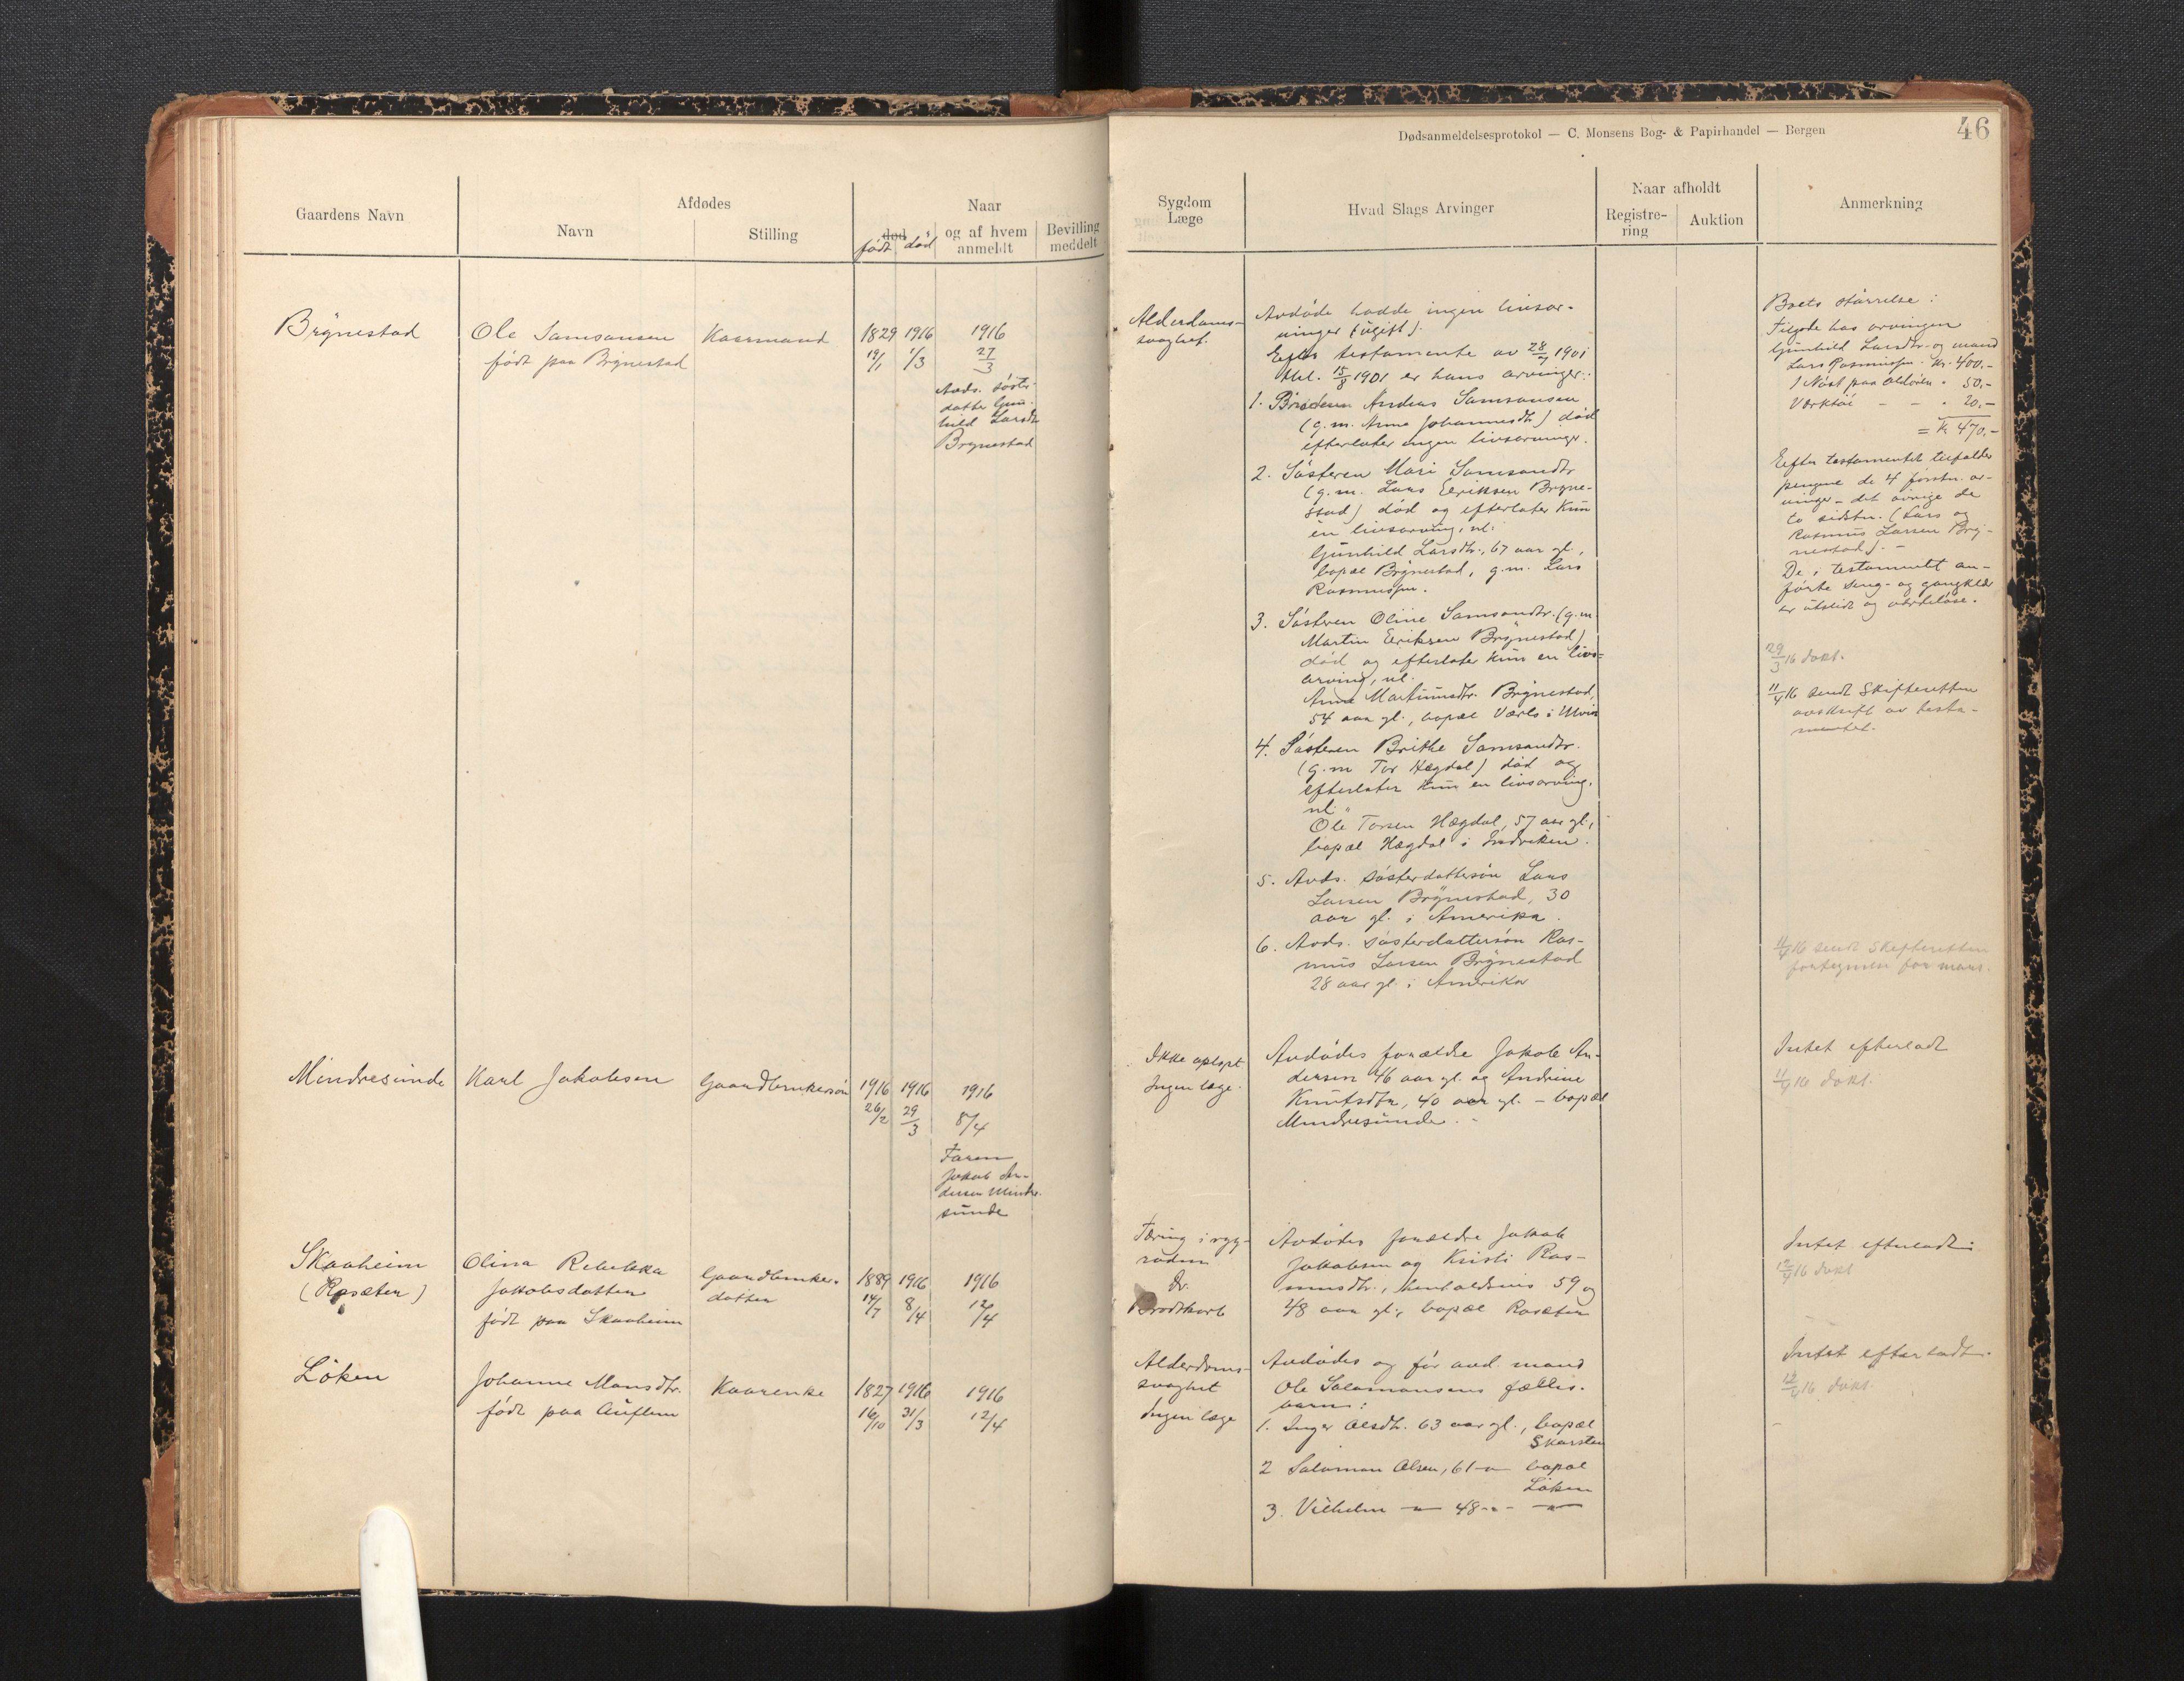 Dødsanmeldelsesprotokol — C. Monsens Bog- & Papirhandel — Bergen
46
Gaardens Navn
Afdødes
Navn
Stilling
Naar
død
født død
og af hvem
anmeldt
Bevilling
meddelt
Sygdom
Læge
Hvad Slags Arvinger
Naar afholdt
Registre-
ring
Auktion
Anmerkning
Brynestad
Ole Samsonsen
født paa Brynestad
Kaarmand
1829 1916 1916
19/1 1/3 27/3
Avds. søster-
datter Gun-
hild Larsdtr
Brynestad
Alderdoms-
svaghet.
Avdøde hadde ingen livsar-
vinger (ugift).
Efter testamente av 28/7 1901
thl. 15/8 1901 er hans arvinger:
1. Broderen Andreas Samsonsen
(g.m. Anna Johannesdtr) død
efterlater ingen livsarvinger.
2. Søsteren Mari Samsondtr
(g.m. Lars Eeriksen Bryne-
stad) død og efterlater kun
en livsarving, nl:
Gunhild Larsdtr., 67 aar gl.,
bopæl Brynestad, g.m. Lars
Rasmussen.
3. Søsteren Oline Samsondtr. (g.m
Martin Eeriksen Brynestad)
død og efterlater kun en livs-
arving, nl.
Anna Martinusdtr. Brynestad,
54 aar gl., bopæl
4. Søsteren Brithe Samsondtr.
(g.m Tor Hægdal) død og
efterlater kun en livsarving,
nl.
Ole Torsen Hægdal, 57 aar gl.,
bopæl Hægdal i Indviken.
5. Avds. søsterdattersøn Lars
Larsen Brynestad, 30
aar gl. i Amerika.
6. Avds. søsterdattersøn Ras-
mus Larsen Brynestad
28 aar gl. i Amerika
Boets størrelse:
Tilgode hos arvingen
Gunhild Larsdtr. og mand
Lars Rasmussen. Kr. 400.-
1 Nøst paa Oldøren " 50.-
Værktøi - - " 20.-
= Kr 470.-
Efter testamentet tilfalder
pengene de 4 førstn. ar-
vinger - det øvrige de
to sidstn. (Lars og
Rasmus Larsen Bry-
nestad). -
De i testamentet an-
førte seng- og gangklær
er utslidt og værdiløse.
29/3 16 dokt.
11/4 16 sendt Skifteretten
avskrift av testa-
mentet.
11/4 16 sendt Skifteretten
fortegnelse for mars.
Mindresunde
Karl Jakobsen
Gaardbrukersøn
1916 1916 1916
26/2 29/3 8/4
Faren
Jakob An-
dersen Mindre-
sunde
Ikke oplyst
Ingen læge.
Avdødes forældre Jakob An-
dersen 46 aar gl. og Andrine
Knutsdtr, 40 aar gl. - bopæl
Mindresunde. -
Intet efterladt
11/4 16 dokt.
Skaaheim
(Rosæter)
Olina Rebekka
Jakobsdatter
født paa Skaaheim
Gaardbruker-
datter
1889 1916 1916
14/7 8/4 12/4
Tæring i ryg-
raden
Dr.
Brodtkorb
Avdødes forældre Jakob
Jakobsen og Kristi Ras-
musdtr., henholdsvis 59 og
48 aar gl., bopæl Rosæter
Intet efterladt
12/4 16 dokt
Løken
Johanne Monsdtr.
født paa Auflem
Kaarenke
1827 1916 1916
16/10 31/3 12/4
Alderdoms-
svaghet
Ingen læge
Avdødes og før avd. mand
Ole Salamonsens fælles-
barn:
1. Inger Olsdtr. 63 aar gl., bopæl
Skarsten
2 Salamon Olsen, 61 -"- bopæl
Løken
3. Vilhelm -"- 48 -"- -"-
Intet efterladt.
12/4 16 dokt.